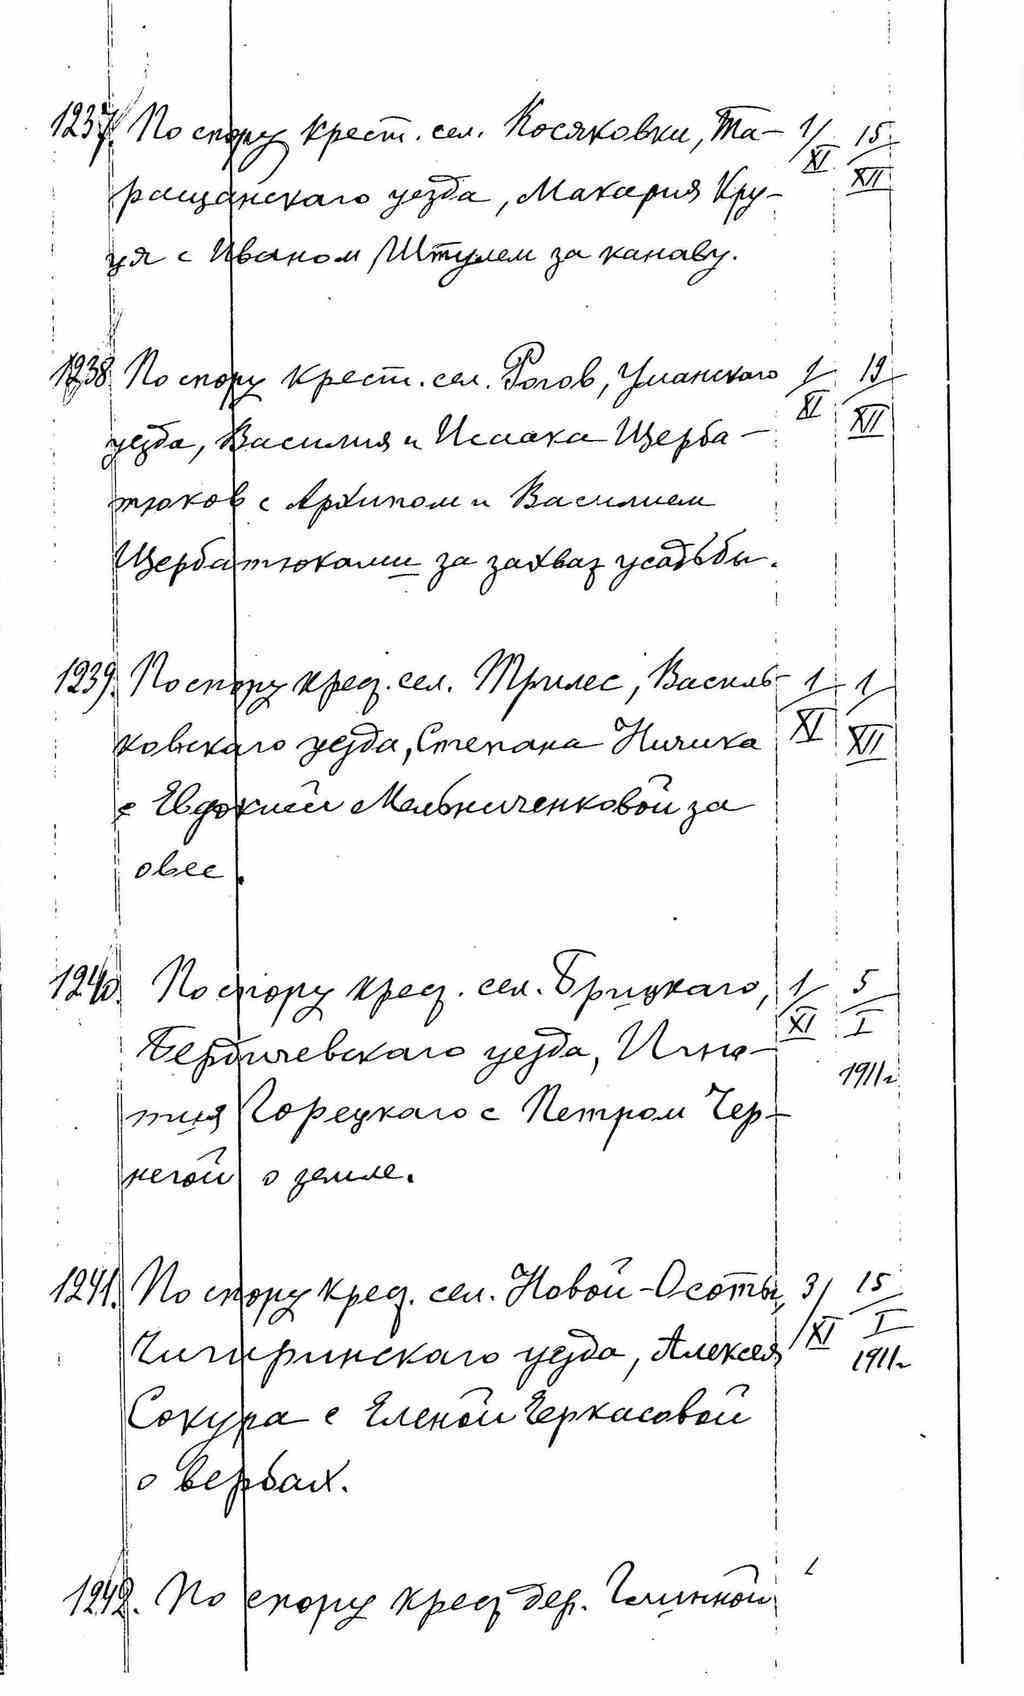 1237. По спору крест. сел. Косяковки, Та- 1/XI 15/XII
ращанскаго уезда, Макария Кру-
ця с Иваном Штулем за канаву.
1238 По спору крест. сел. Рогов, Уманскаго 1/XI 19/XII
уезда, Василия и Исаака Щерба-
тюков с Архипом и Василием
Щербатюками за захват усадьбы.
1239. По спору крест. сел. Трилес, Василь- 1/XI 1/XII
ковскаго уезда, Степана Ничика
с Евдокией Мельниченковой за
овес.
1240. По спору крест. сел. Брицкаго, 1/XI 5/I
Бердичевскаго уезда, Игна- 1911г
тия Горецкаго с Петром Чер-
негой о земле.
1241. По спору крест. сел. Новой-Осоты, 3/XI 15/I
Чигиринскаго уезда, Алексея 1911г
Сокура с Еленой Черкасовой
о вербах.
1242. По спору крест дер. Глинной